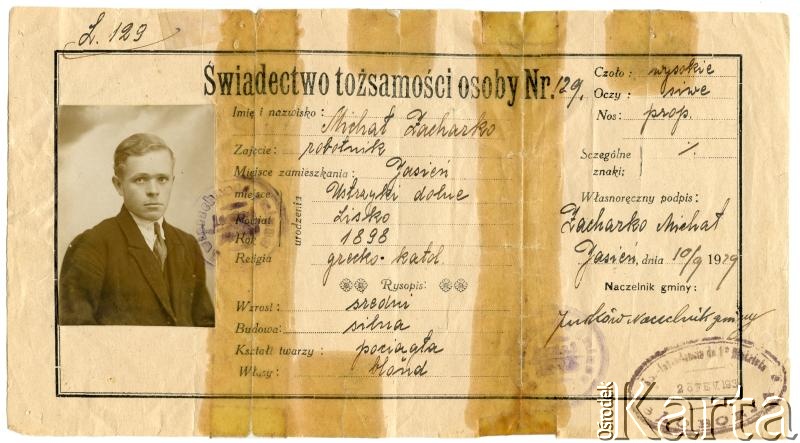 L. 129
Świadectwo tożsamości osoby Nr. 129.
Imię i nazwisko: Michał Zacharko
Zajęcie: robotnik
Miejsce zamieszkania: Jasień
miejsce Ustrzyki dolne
Powiat Lisko
Rok 1898
urodzenia
Religia grecko-katol
Rysopis:
Wzrost: średni
Budowa: silna
Kształt twarzy: pociągła
Włosy: blond
Czoło: wysokie
Oczy: siwe
Nos: prop.
Szczególne
znaki: /.
Własnoręczny podpis:
Zacharko Michał
Jasień, dnia 10/9 1929
Naczelnik gminy:
Naczelnik gminy
Ośrodek
Karta